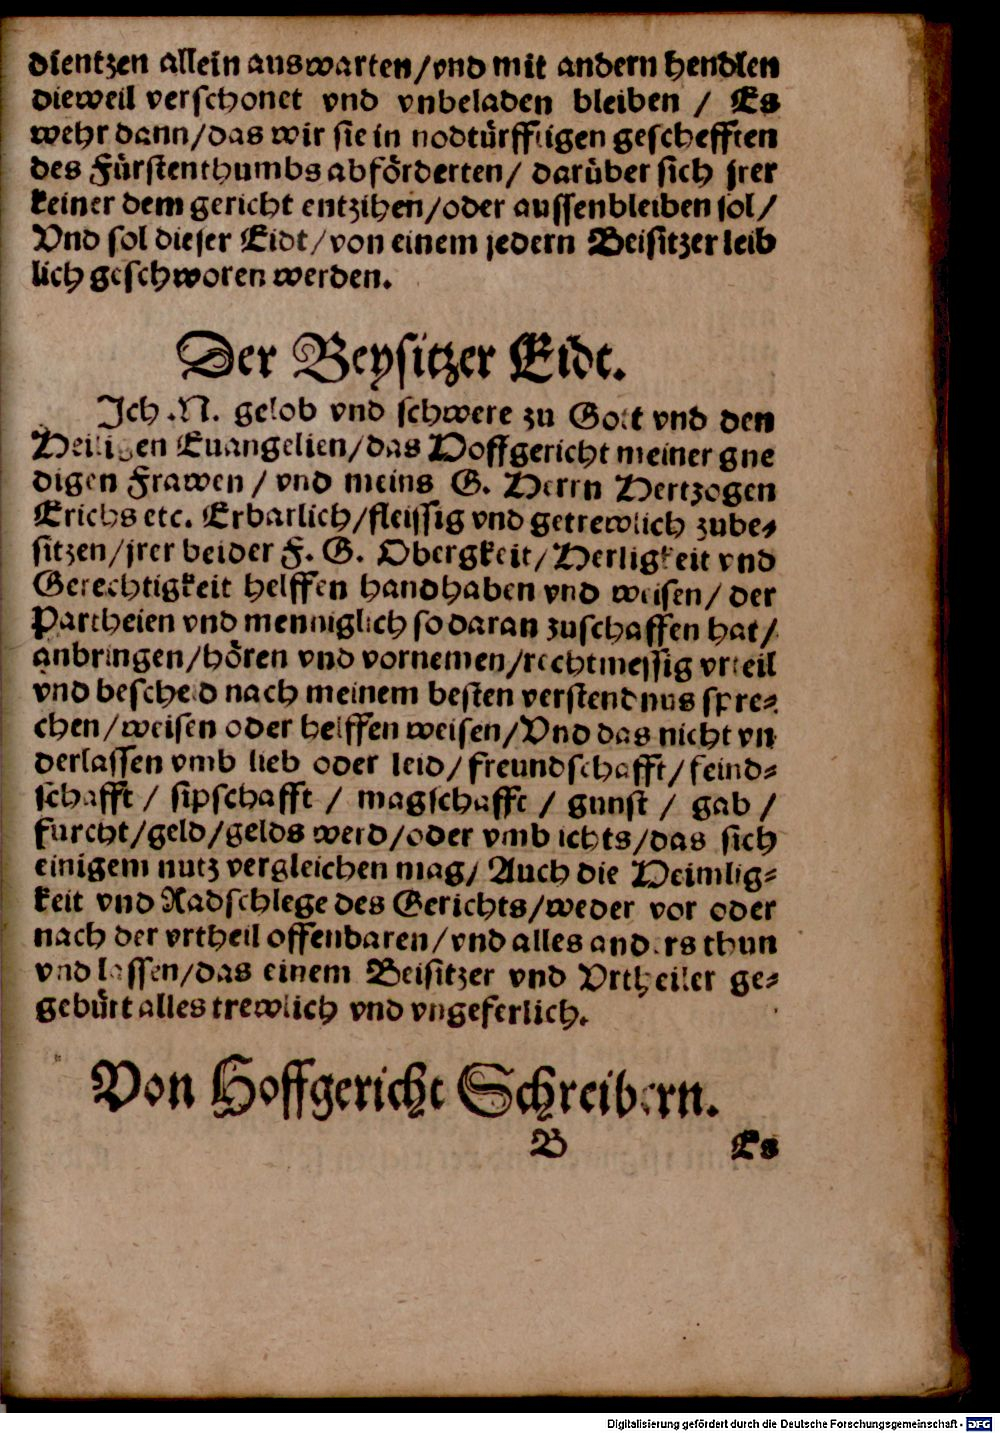 dientzen allein auswarten/vnd mit andern hendlen
dieweil verschonet vnd vnbeladen bleiben / Es
wehr dann/das wir sie in nodtürfftigen geschefften
des Fürstenthumbs abförderten/ darüber sich jrer
keiner dem gericht entzihen/oder aussenbleiben sol/
Vnd sol dieser Eidt/von einem jedern Beisitzer leib
lich geschworen werden.
Der Beysitzer Eidt.
Ich .N. gelob vnd schwere zu Gott vnd den
Heiligen Euangelien/das Hoffgericht meiner gne
digen Frawen / vnd meins G. Herrn Hertzogen
Erichs etc. Erbarlich/fleissig vnd getrewlich zube-
sitzen/jrer beider F. G. Obergkeit/Herligkeit vnd
Gerechtigkeit helffen handhaben vnd weisen/ der
Partheien vnd menniglich so daran zuschaffen hat/
anbringen/hören vnd vornemen/rechtmessig vrteil
vnd bescheid nach meinem besten verstendnus spre-
chen/weisen oder helffen weisen/Vnd das nicht vn
derlassen vmb lieb oder leid/freundschafft/feind-
schafft / sipschafft / magschafft / gunst / gab /
furcht/geld/gelds werd/oder vmb ichts/das sich
einigem nutz vergleichen mag/ Auch die Heimlig-
keit vnd Radschlege des Gerichts/weder vor oder
nach der vrtheil offenbaren/vnd alles anders thun
vnd lassen/das einem Beisitzer vnd Vrtheiler ge-
gebürt alles trewlich vnd vngeferlich.
Von Hoffgericht Schreibern.
B Es
Digitalisierung gefördert durch die Deutsche Forschungsgemeinschaft - DFG